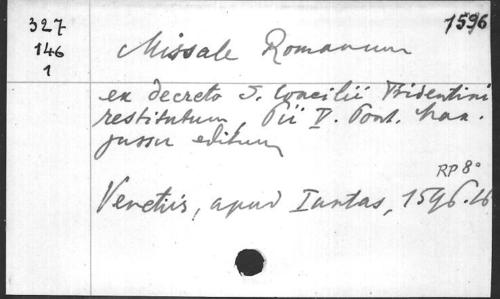 327
146
1
1596
Missale Romanum
ex decreto S. Concilii Tridentini
restitutum, Pii V. Pont. Max.
jussu editum
RP 8°
Venetiis, apud Iuntas, 1596.